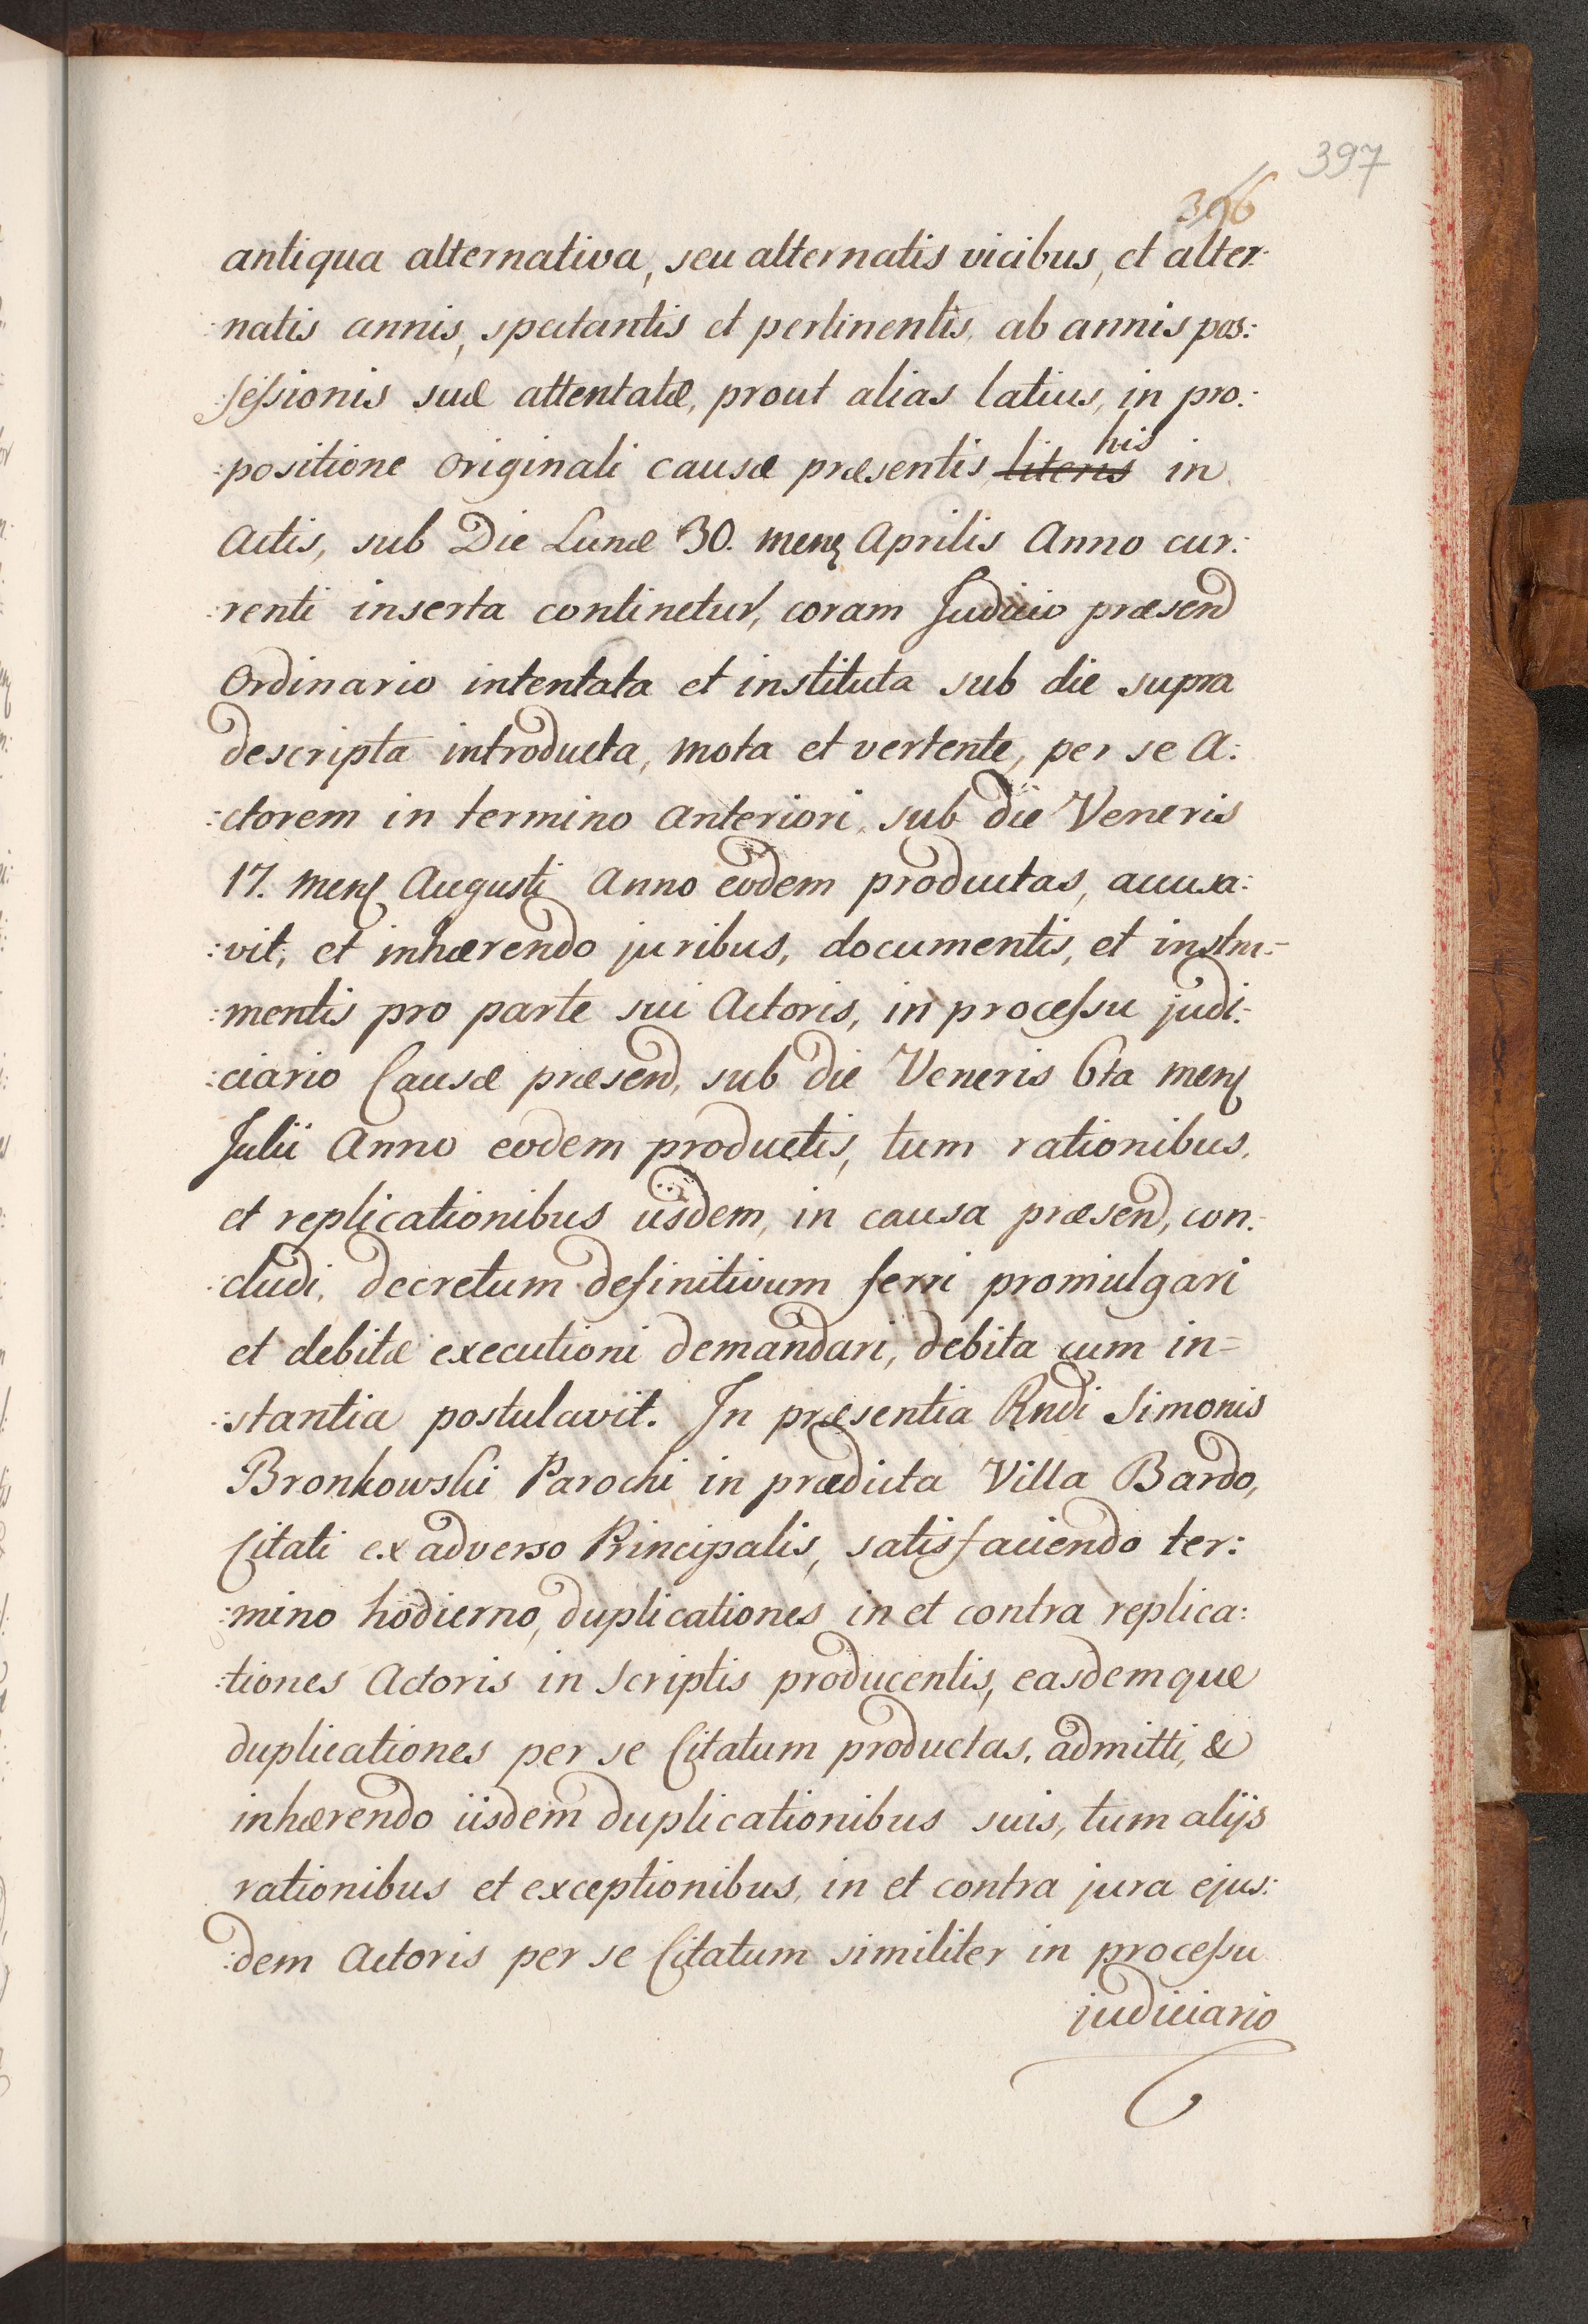 397
396
antiqua alternativa, seu alternatis vicibus, et alter:
:natis annis, spectantis et pertinentis, ab annis pos:
:seſsionis suæ attentatæ, prout alias latius, in pro:
:positione originali causæ præsentis, literis his in
Actis, sub Die Lunæ 30. mens Aprilis Anno cur:
:renti inserta continetur, coram Judicio præsend
Ordinario intentata et instituta sub die supra
descripta introducta, mota et vertente, per se A:
:ctorem in termino anteriori, sub die Veneris
17. mens Augusti Anno eodem productas, accusa:
:vit, et inhærendo juribus, documentis, et instru=
:mentis pro parte sui Actoris, in proceſsu judi:
:ciario Causæ præsend, sub die Veneris 6ta mens
Julii Anno eodem productis, tum rationibus,
et replicationibus iisdem, in causa præsend, con:
:cludi, decretum definitivum ferri promulgari
et debitæ executioni demandari, debita cum in=
:stantia postulavit. In præsentia Rndi Simonis
Bronkowski Parochi in prædicta Villa Bardo,
Citati ex adverso Principalis, satisfaciendo ter:
:mino hodierno, duplicationes in et contra replica:
:tiones Actoris in scriptis producentis, easdemque
duplicationes per se Citatum productas, admitti, &
inhærendo iisdem duplicationibus suis, tum alijs
rationibus et exceptionibus, in et contra jura ejus:
:dem Actoris per se Citatum similiter in proceſsu
judiciario